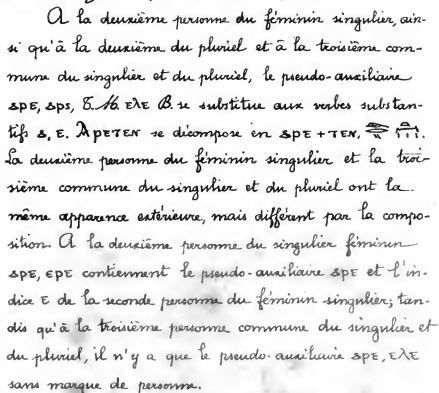 A la deuxième personne du féminin singulier, ain-
si qu'à la deuxième du pluriel et à la troisième com-
mune du singulier et du pluriel, le pseudo-auxiliaire
ⲁⲣⲉ, ⲁⲣⲥ, T. M. ⲉⲗⲉ B. se substitue aux verbes substan-
tifs ⲁ, ⲉ. ⲁⲣⲉⲧⲉⲛ se décompose en ⲁⲣⲉ + ⲧⲉⲛ,
La deuxième personne du féminin singulier et la troi-
sième commune du singulier et du pluriel ont la
même apparence extérieure, mais différent par la compo-
sition. A la deuxième personne du singulier féminin
ⲁⲣⲉ, ⲉⲣⲉ contiennent le pseudo-auxiliaire ⲁⲣⲉ et l'in-
dice ⲉ de la seconde personne du féminin singulier; tan-
dis qu'à la troisième personne commune du singulier et
du pluriel, il n'y a que le pseudo-auxiliaire ⲁⲣⲉ, ⲉⲗⲉ
sans marque de personne.